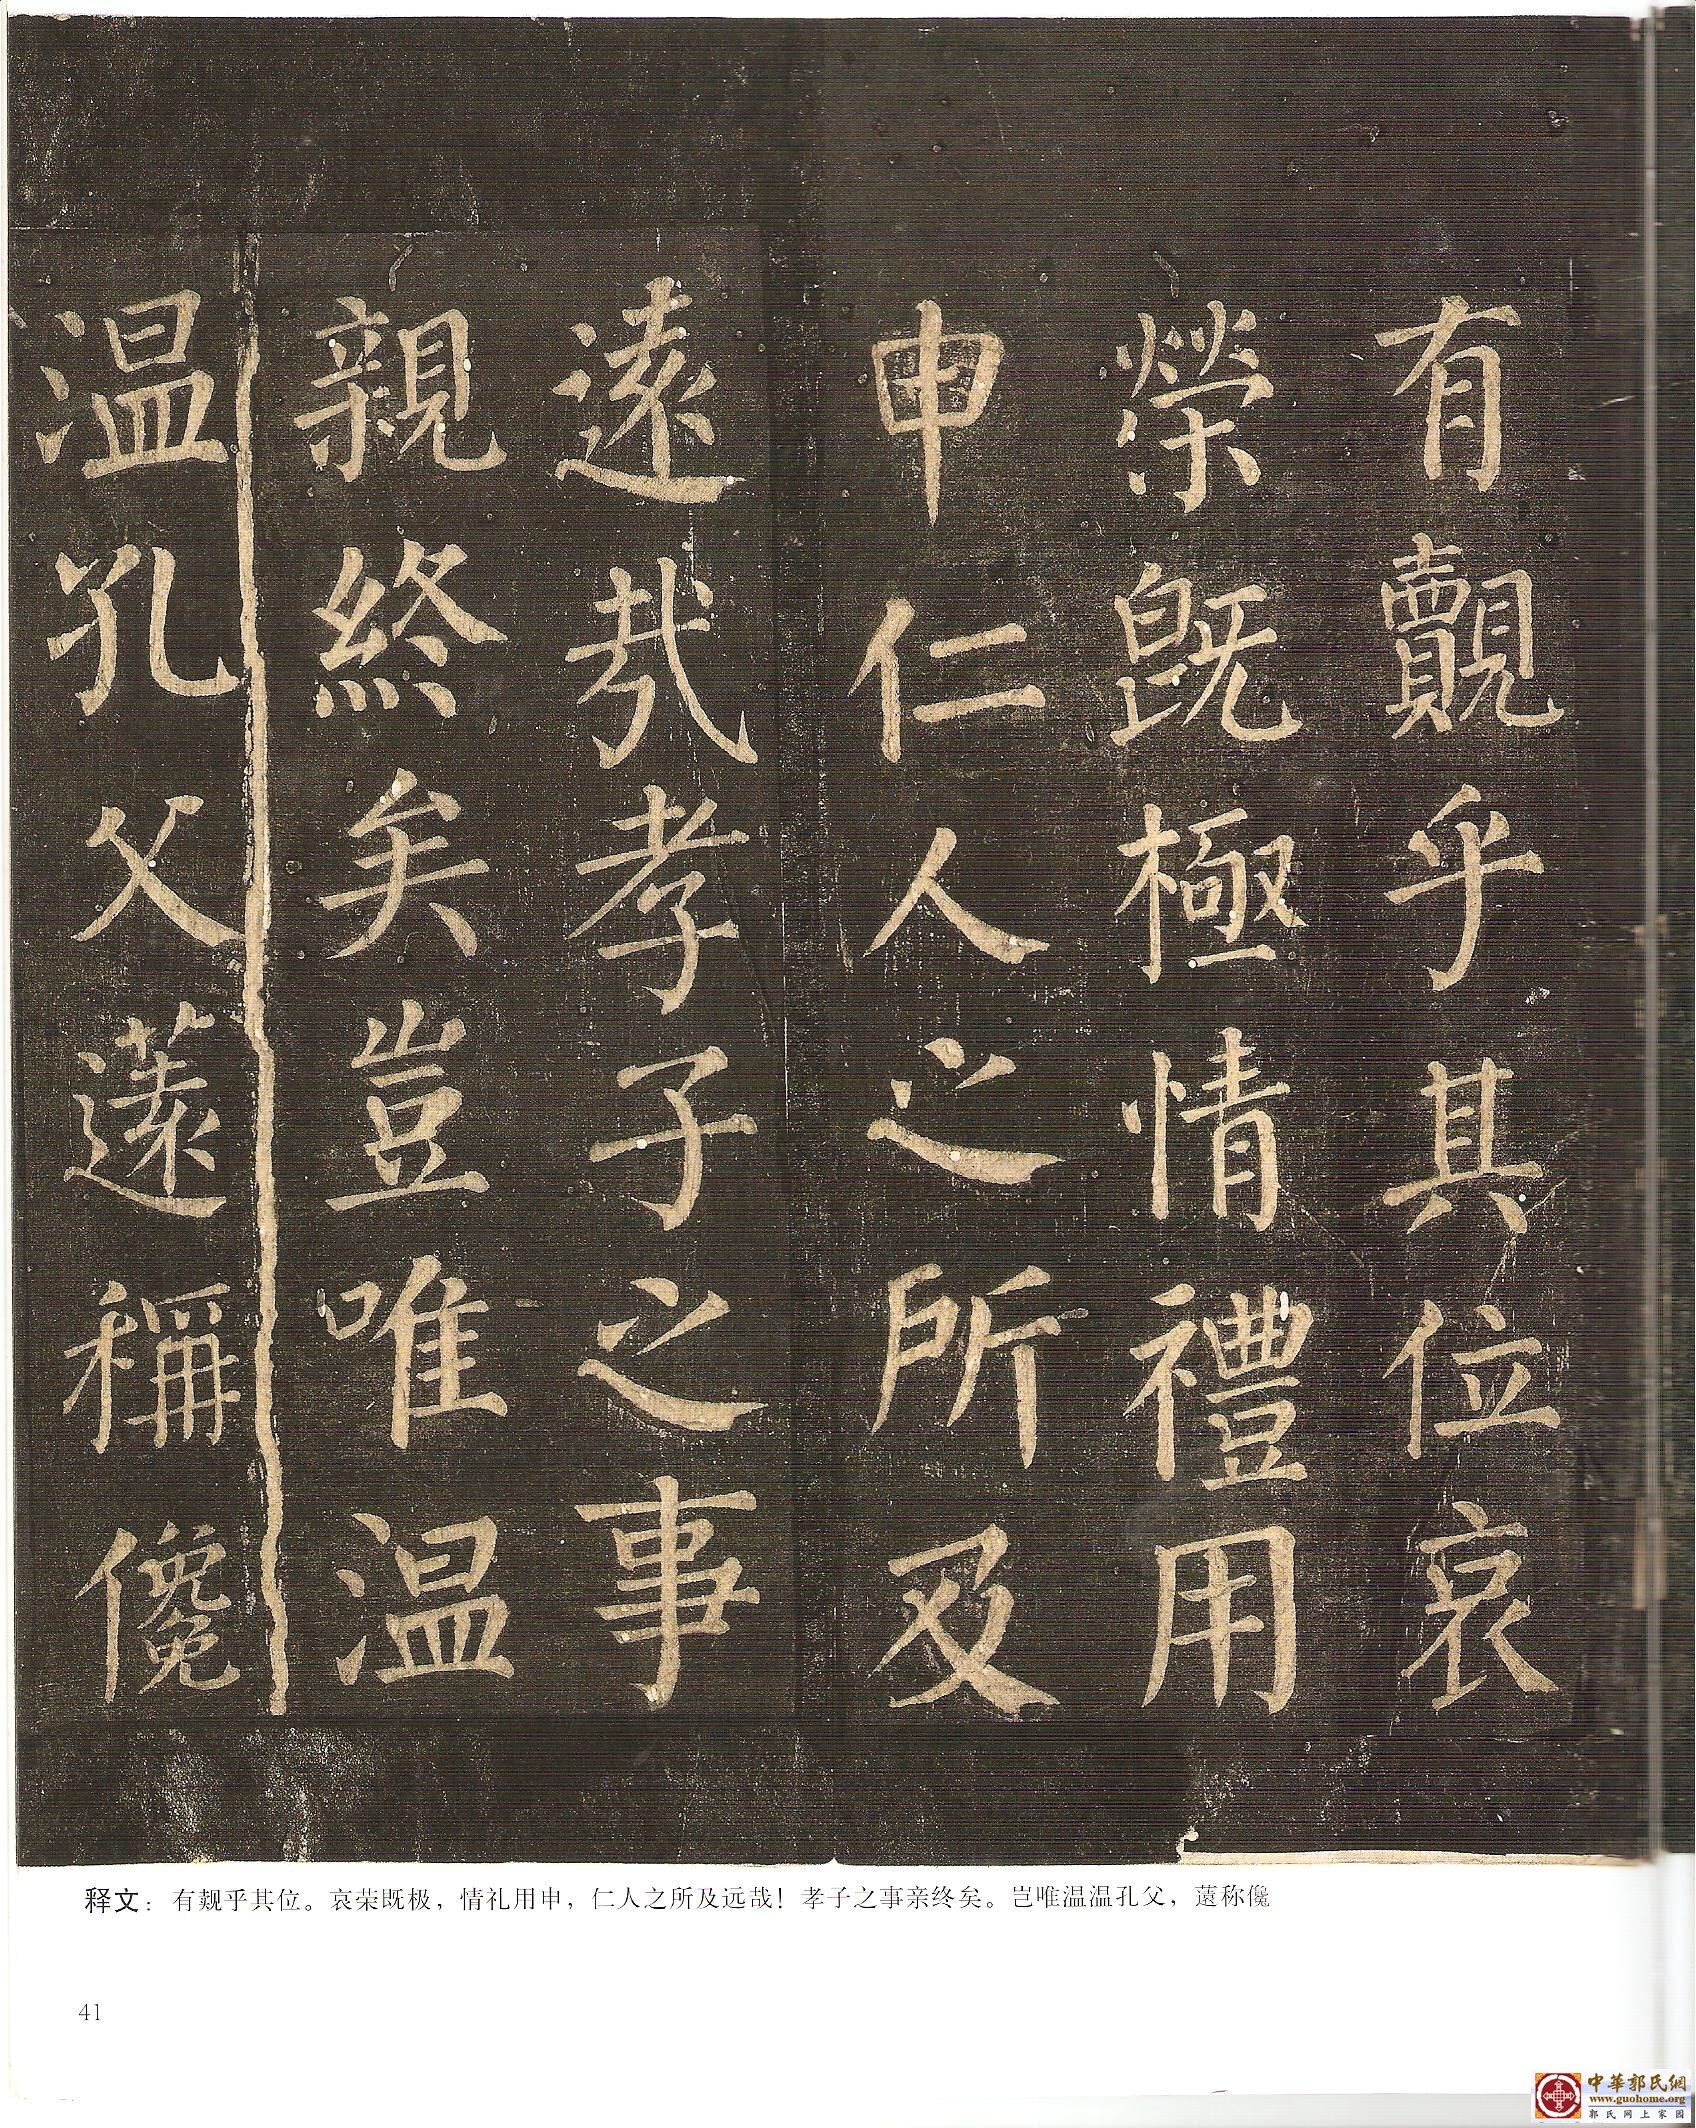 有覿乎其位哀
榮既極情禮用
申仁人之所及
遠哉孝子之事
親終矣豈唯温
温孔父薳稱儳
释文：有觌乎其位。哀荣既极，情礼用申，仁人之所及远哉！孝子之事亲终矣。岂唯温温孔父，薳称儳
41
中華郭氏網
www.guohome.org
郭氏网上家园